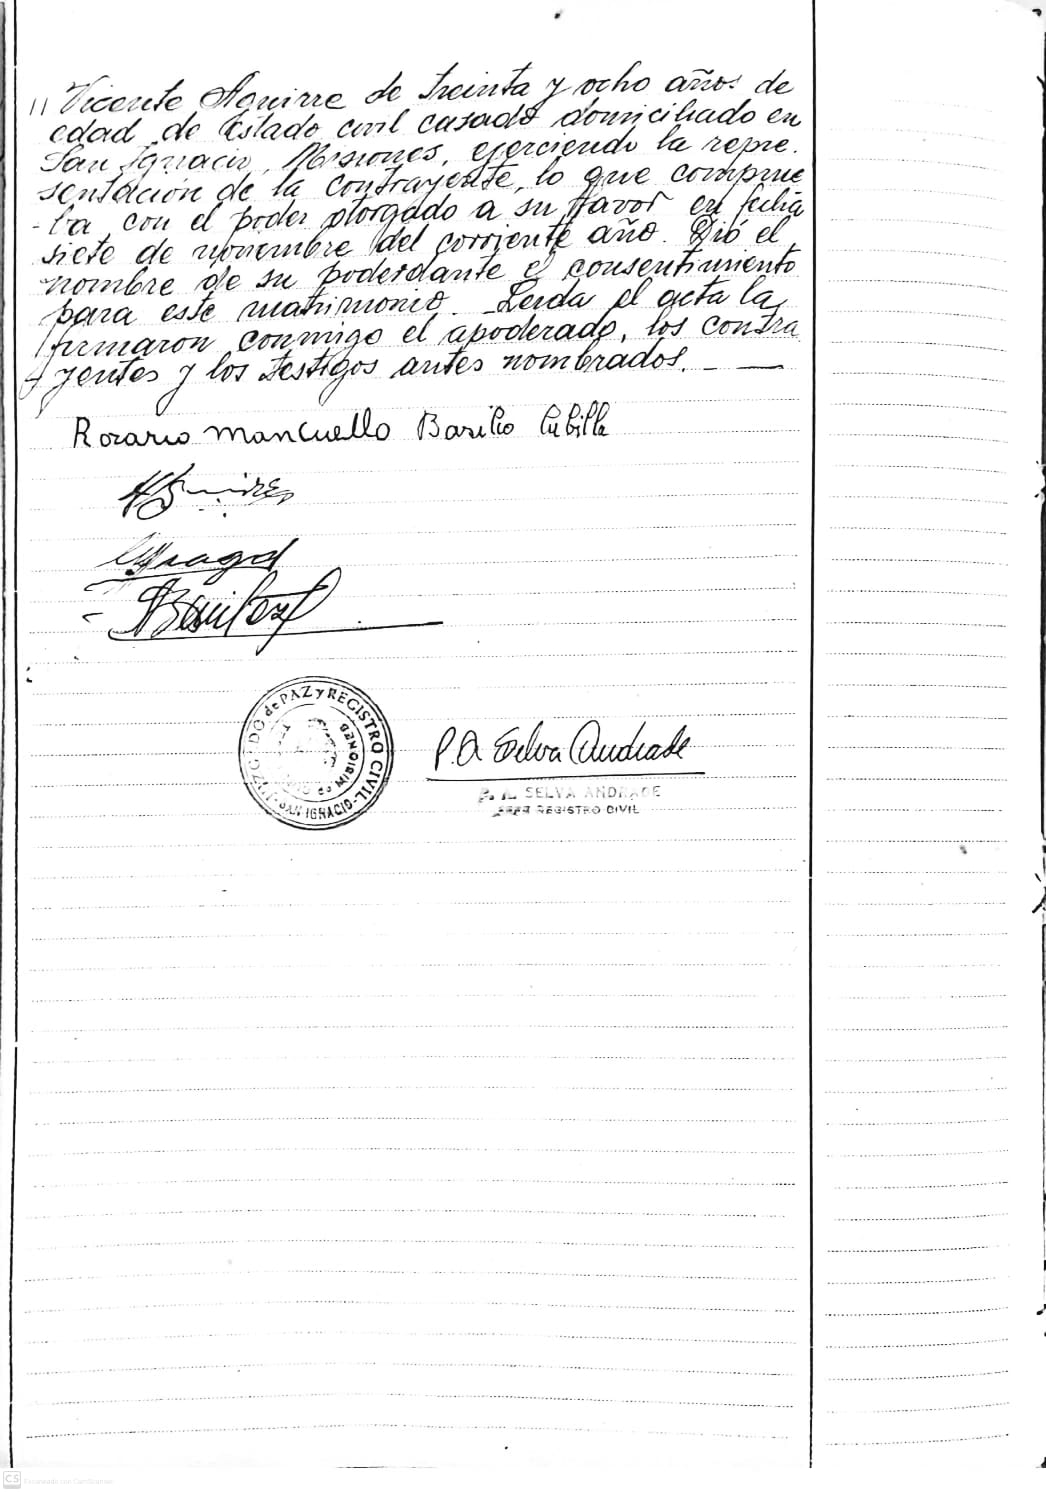 // Vicente Aguirre de treinta y ocho años de
edad, de Estado civil casado domiciliado en
San Ignacio, Misiones, ejerciendo la repre-
sentación de la contrayente, lo que comprue
-ba con el poder otorgado a su favor en fecha
siete de noviembre del corriente año. Dió el
nombre de su poderdante el consentimiento
para este matrimonio. - Leida el acta la
firmaron conmigo el apoderado, los contra
yentes y los testigos antes nombrados. - —
Rosario Mancuello Basilio Cubilla
Benitez
JUZGADO de PAZ y REGISTRO CIVIL
MISIONES
-SAN IGNACIO-
P.A Selva Andrade
P. A. SELVA ANDRADE
REGISTRO CIVIL
CS Escaneado con CamScanner